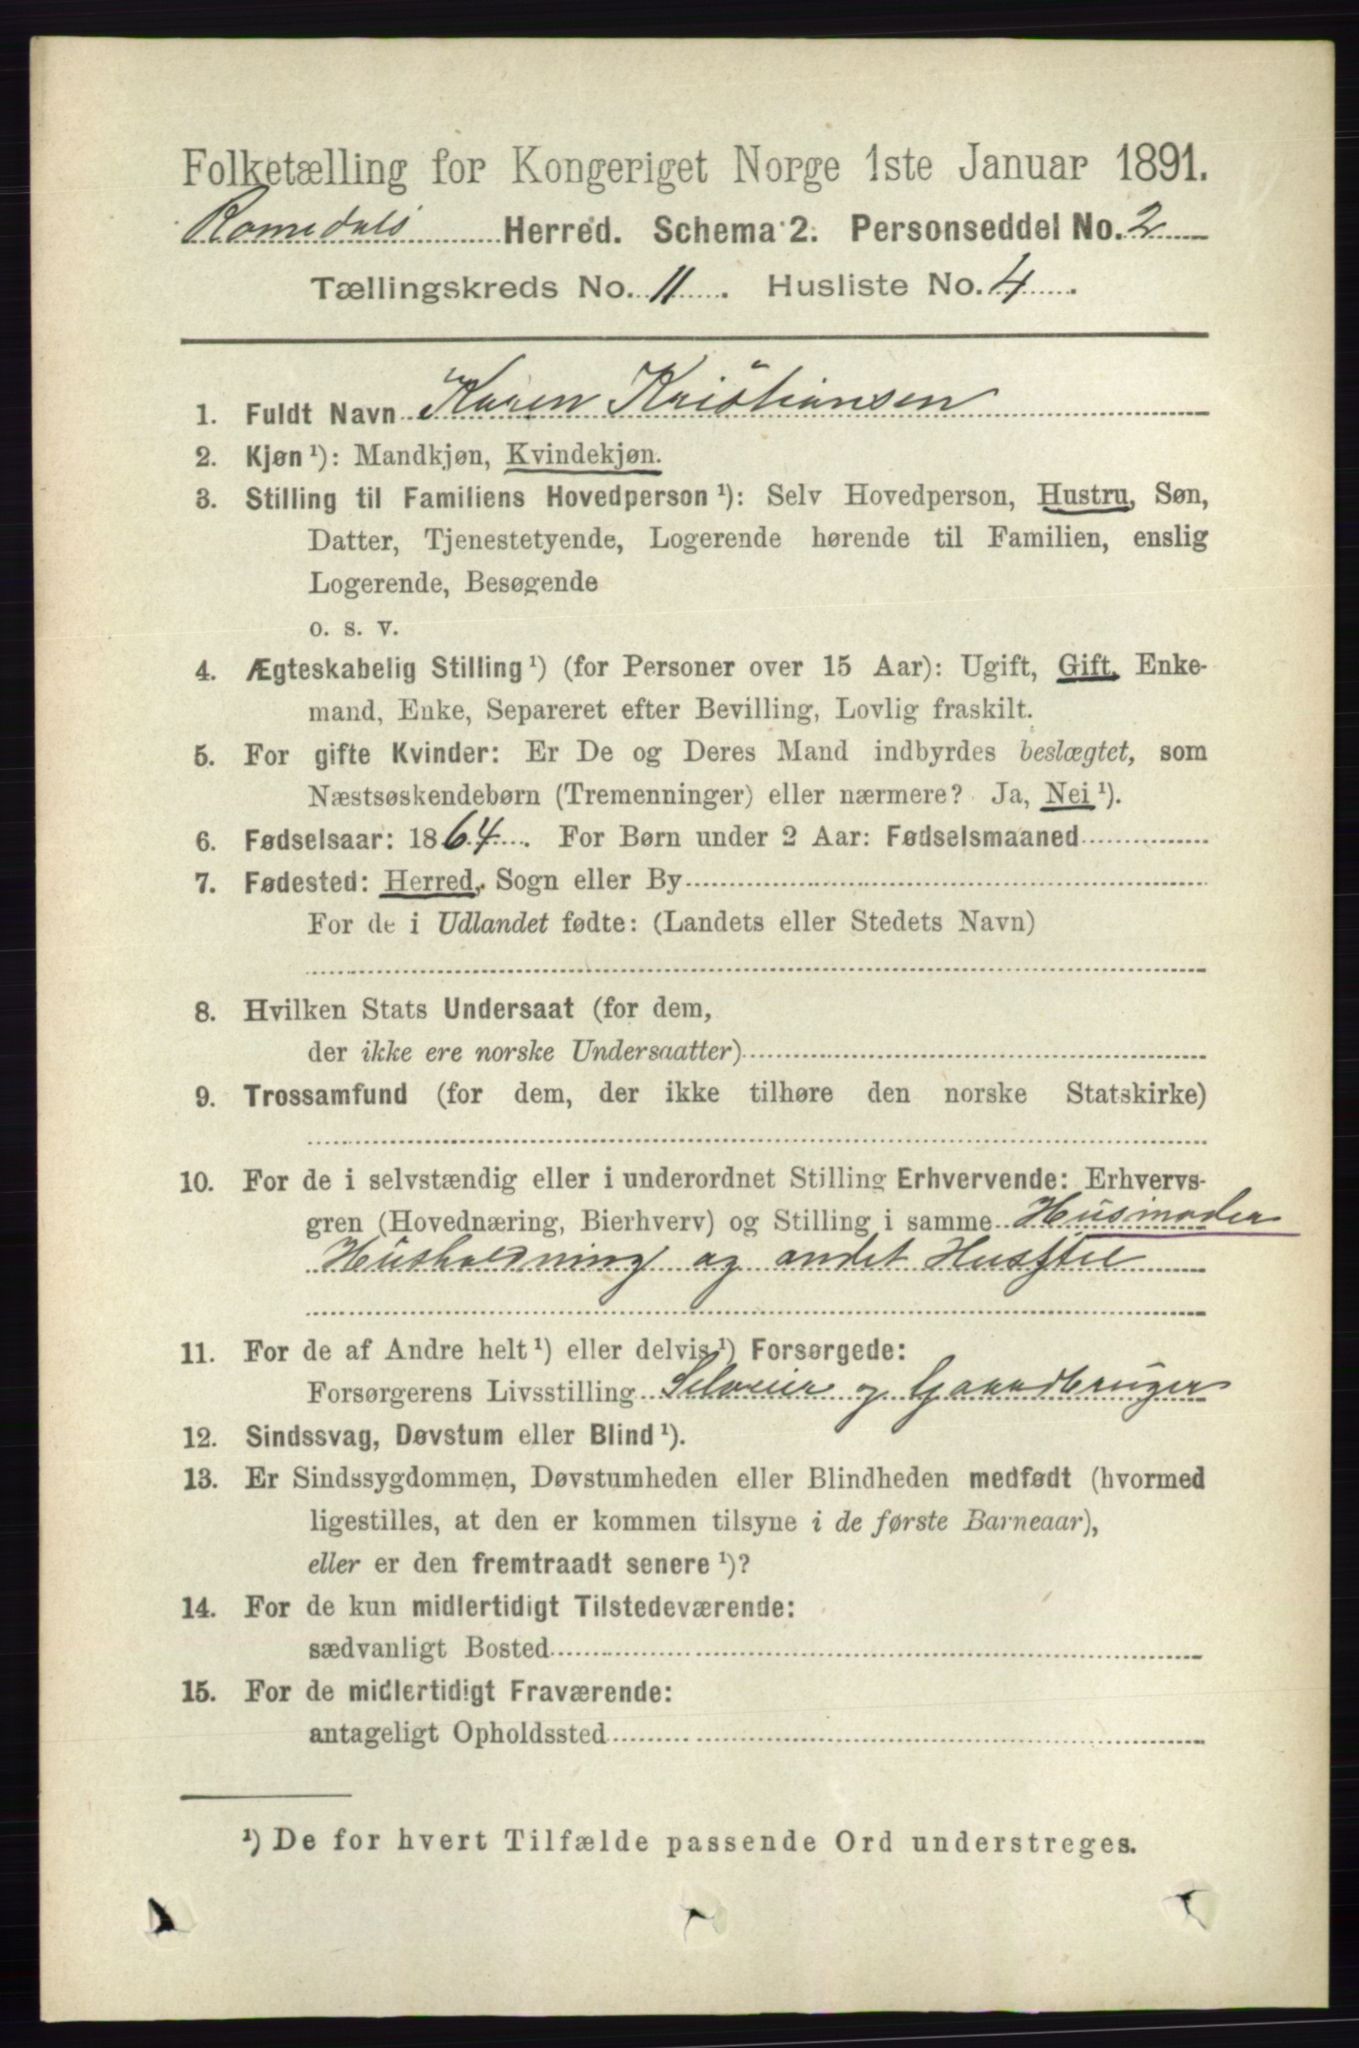 Folketælling for Kongeriget Norge 1ste Januar 1891.
Romedals Herred. Schema 2. Personseddel No. 2
Tællingskreds No. 11. Husliste No. 4.
1. Fuldt Navn Karen Kristiansen
2. Kjøn¹): Mandkjøn, Kvindekjøn.
3. Stilling til Familiens Hovedperson¹): Selv Hovedperson, Hustru, Søn,
Datter, Tjenestetyende, Logerende hørende til Familien, enslig
Logerende, Besøgende
o. s. v.
4. Ægteskabelig Stilling¹) (for Personer over 15 Aar): Ugift, Gift, Enke-
mand, Enke, Separeret efter Bevilling, Lovlig fraskilt.
5. For gifte Kvinder: Er De og Deres Mand indbyrdes beslægtet, som
Næstsøskendebørn (Tremenninger) eller nærmere? Ja, Nei¹).
6. Fødselsaar: 1864. For Børn under 2 Aar: Fødselsmaaned
7. Fødested: Herred, Sogn eller By
For de i Udlandet fødte: (Landets eller Stedets Navn)
8. Hvilken Stats Undersaat (for dem,
der ikke ere norske Undersaatter)
9. Trossamfund (for dem, der ikke tilhøre den norske Statskirke)
10. For de i selvstændig eller i underordnet Stilling Erhvervende: Erhvervs-
gren (Hovednæring, Bierhverv) og Stilling i samme Husmoder
Husholdning og andet Husstel
11. For de af Andre helt¹) eller delvis¹) Forsørgede:
Forsørgerens Livsstilling Selveier og Gaardbruger
12. Sindssvag, Døvstum eller Blind¹).
13. Er Sindssygdommen, Døvstumheden eller Blindheden medfødt (hvormed
ligestilles, at den er kommen tilsyne i de første Barneaar),
eller er den fremtraadt senere¹)?
14. For de kun midlertidigt Tilstedeværende:
sædvanligt Bosted
15. For de midlertidigt Fraværende:
antageligt Opholdssted
¹) De for hvert Tilfælde passende Ord understreges.